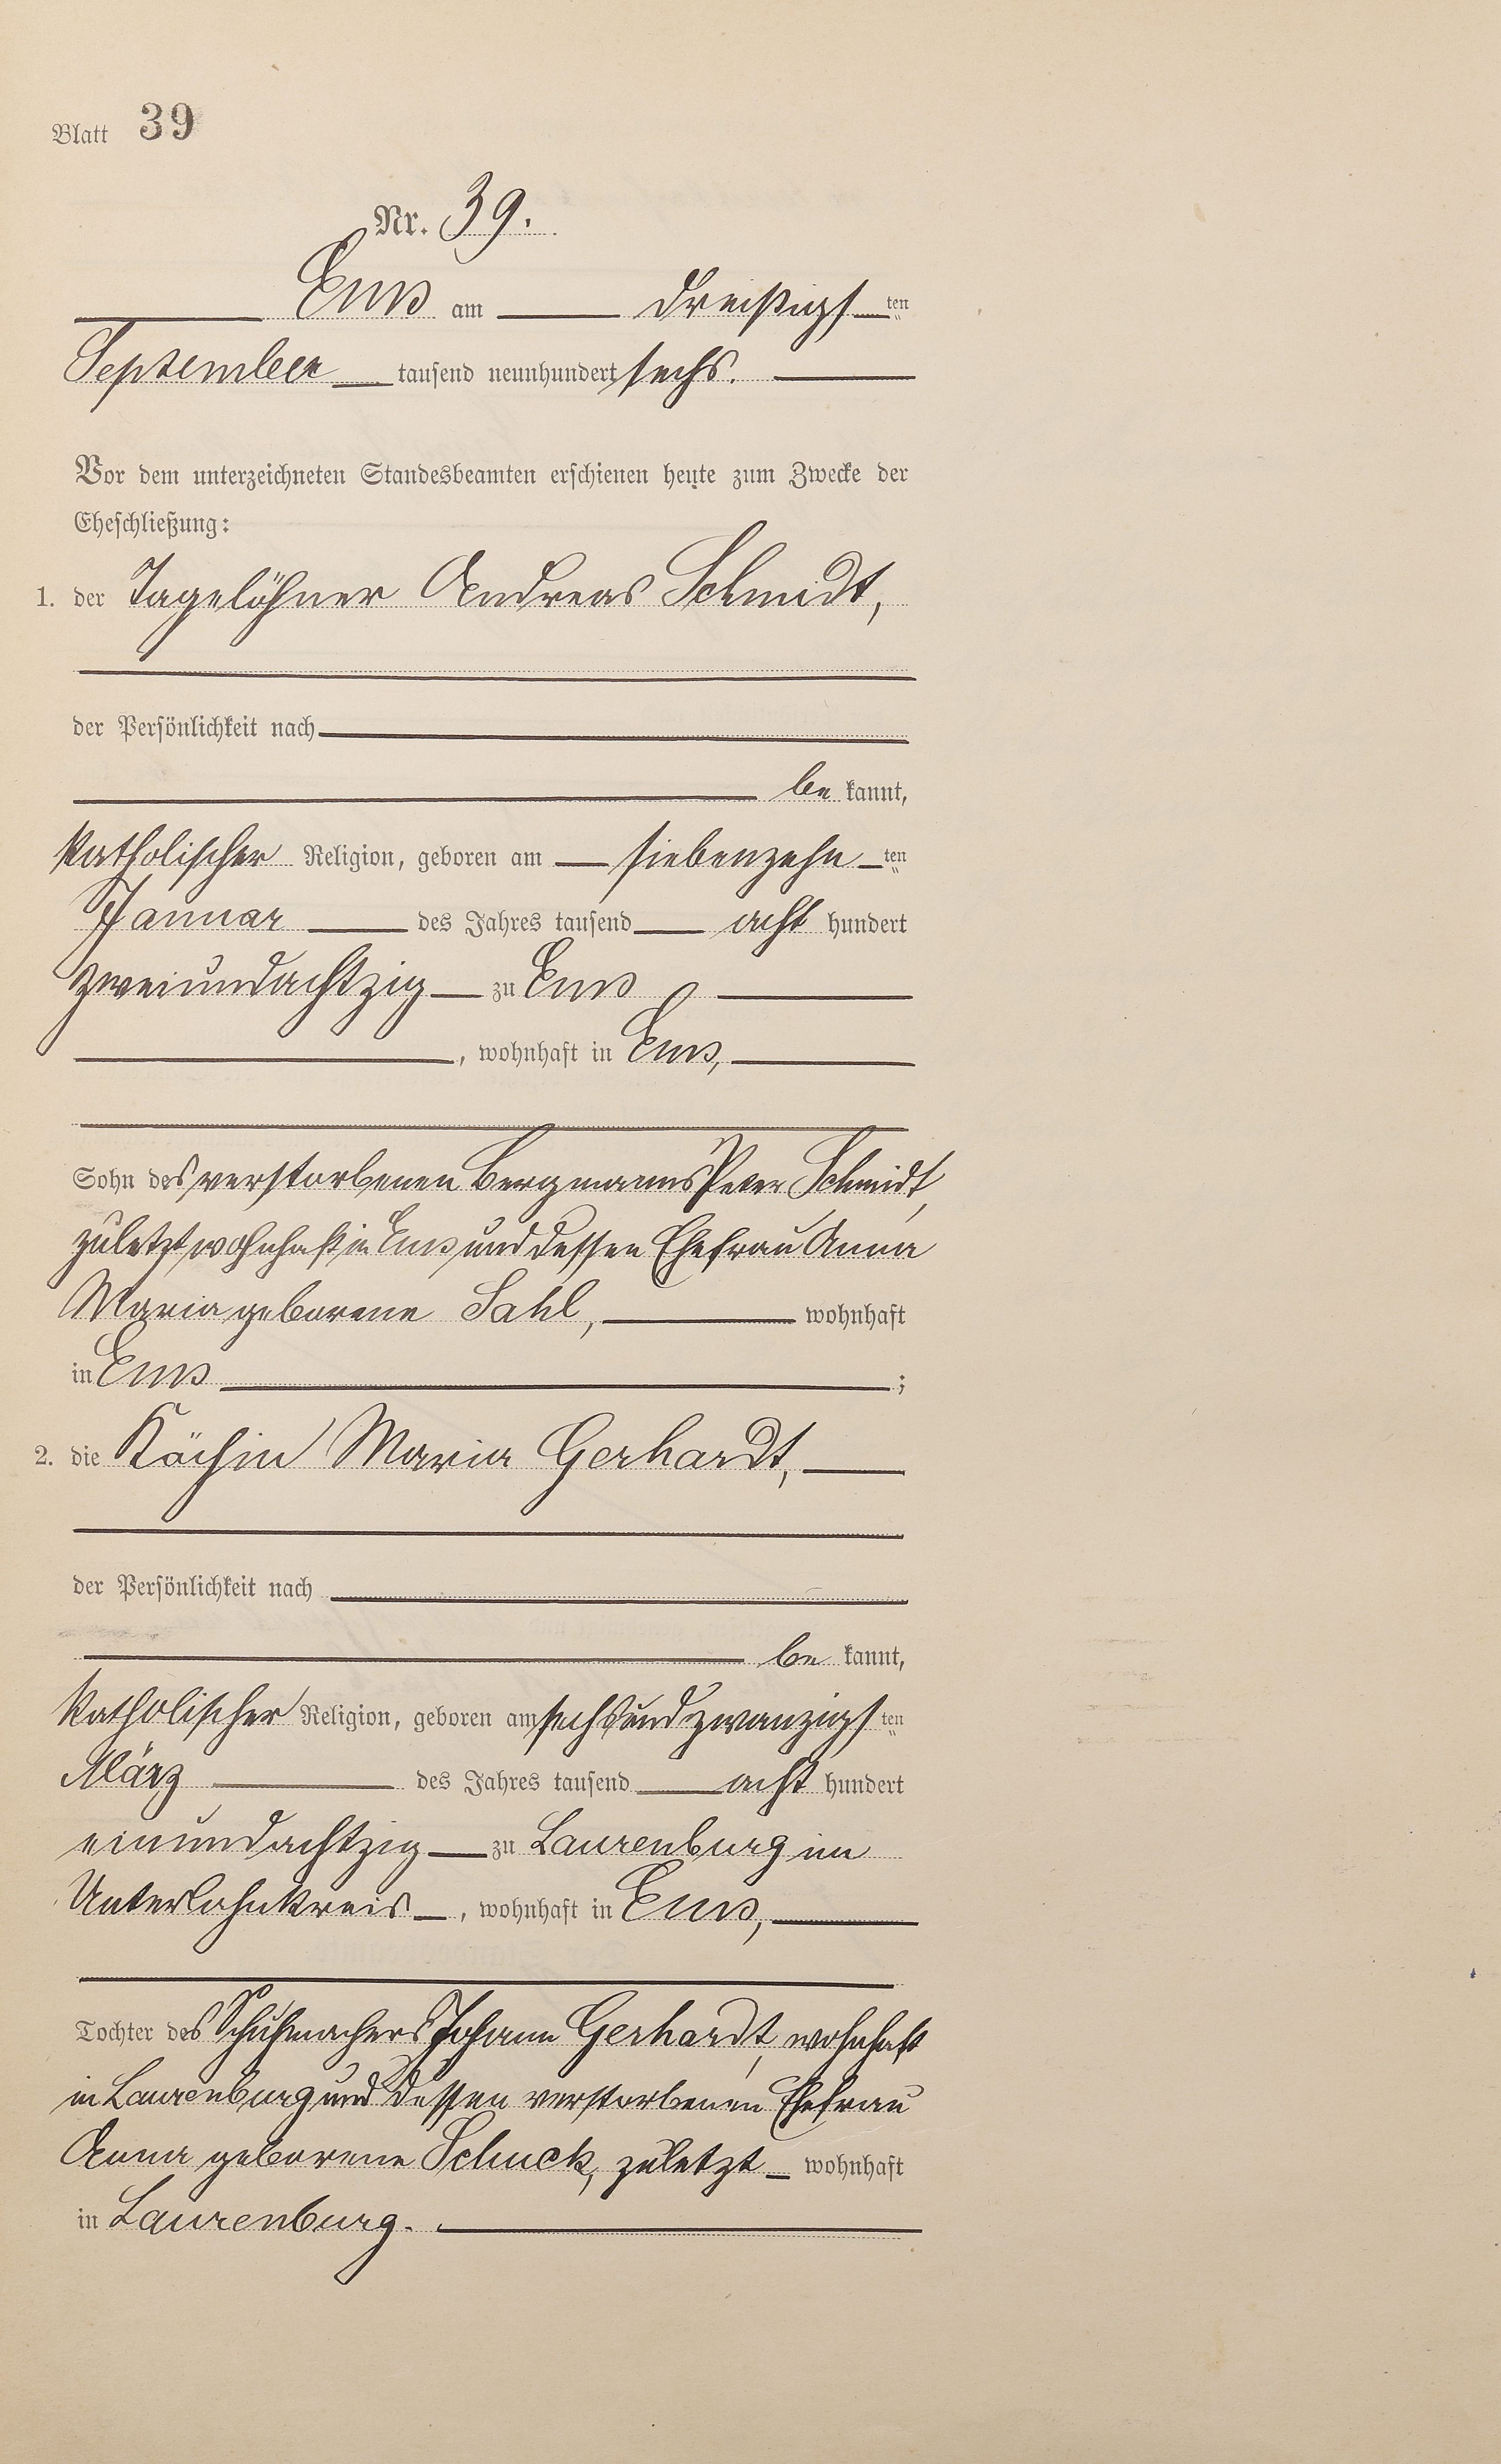 Blatt 39
Nr. 39.
Ems am dreißigsten
September tausend neunhundert sechs.
Vor dem unterzeichneten Standesbeamten erschienen heute zum Zwecke der
Eheschließung:
1. der Tagelöhner Andreas Schmidt,
der Persönlichkeit nach
be kannt,
katholischer Religion, geboren am siebenzehn ten
Januar des Jahres tausend acht hundert
zweiundachtzig zu Ems
, wohnhaft in Ems,
Sohn des verstorbenen Bergmanns Peter Schmidt,
zuletzt wohnhaft in Ems und dessen Ehefrau Anna
Maria geborene Sahl, wohnhaft
in Ems ;
2. die Köchin Maria Gerhardt,
der Persönlichkeit nach
be kannt,
katholischer Religion, geboren am sechsundzwanzigsten
März des Jahres tausend acht hundert
einundachtzig zu Laurenburg im
Unterlahnkreis , wohnhaft in Ems,
Tochter des Schuhmachers Johann Gerhardt, wohnhaft
in Laurenburg und dessen verstorbenen Ehefrau
Anna geborene Schuck, zuletzt wohnhaft
in Laurenburg.